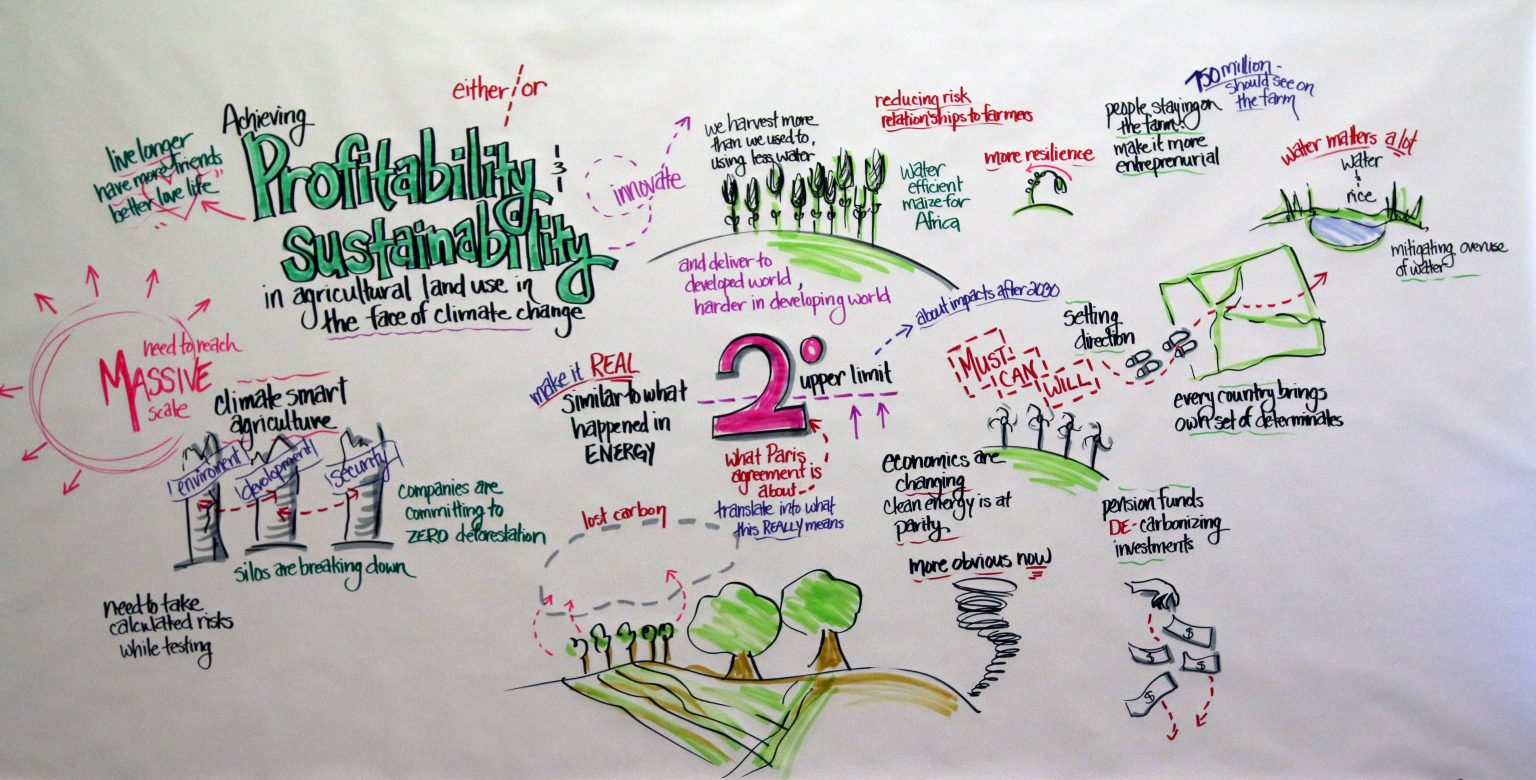 Achieving
Profitability
&
sustainability
in agricultural land use in
the face of climate change
either/or
live longer
have more friends
better love life
need to reach
MASSIVE
scale
climate smart
agriculture
enviroment
devolopment
security
silos are breaking down
companies are
committing to
ZERO deforestation
need to take
calculated risks
while testing
innovate
we harvest more
than we used to,
using less water
and deliver to
developed world,
harder in developing world
water
efficient
maize for
Africa
reducing risk
relationships to farmers
more resilience
people staying on
the farm!
make it more
entreprenurial
750 million -
should see on
the farm
water matters a lot
water
&
rice
mitigating overuse
of water
make it REAL
similar to what
happened in
ENERGY
2°
upper limit
about impacts after 2030
what Paris
agreement is
about
translate into what
this REALLY means
MUST
CAN
WILL
setting
direction
every country brings
own set of determinates
economics are
changing
clean energy is at
parity
more obvious now
pension funds
DE-carbonizing
investments
$
$
$
$
lost carbon